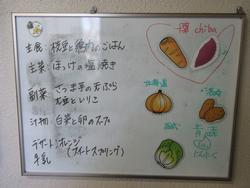 主食：枝豆と鶏肉のごはん
主菜：ほっけの塩焼き
副菜：さつま芋の天ぷら
大豆といりこ
汁物：白菜と卵のスープ
デザート：オレンジ
(スイートスプリング)
牛乳
chiba
北海道
茨城
青森
にんにく